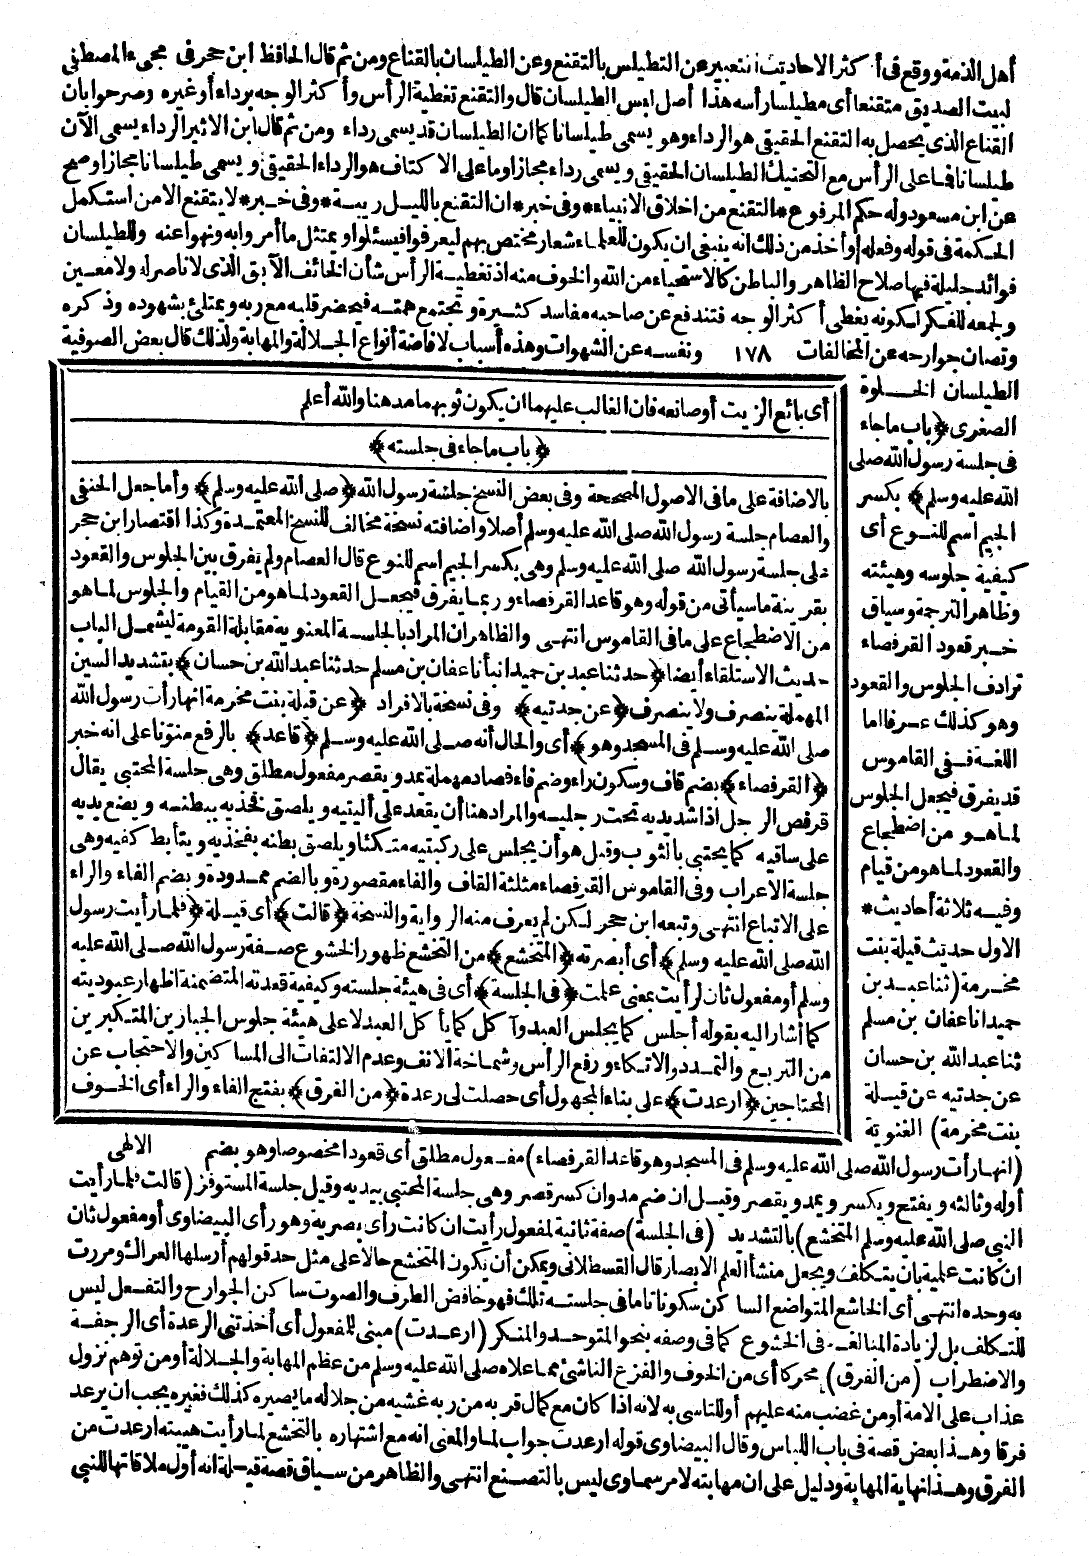 أهل الذمة ووقع فى أكثر الاحاديث التعبير عن التطيلس بالتقنع وعن الطيلسان بالقناع ومن ثم قال الحافظ ابن حجر فى مجىء المصطفى
لبيت الصديق متقنعا أى مطيلسا رأسه هذا أصل لبس الطيلسان قال والتقنع تغطية الرأس وأكثر الوجه برداء أو غيره وصرحوا بان
القناع الذى يحصل به التقنع الحقيقى هو الرداء وهو يسمى طيلسانا كما ان الطيلسان قد يسمى رداء ومن ثم قال ابن الاثير الرداء يسمى الآن
طيلسانا فما على الرأس مع التحنيك الطيلسان الحقيقى ويسمى رداء مجازا وما على الاكتاف هو الرداء الحقيقى ويسمى طيلسانا مجازا وصح
عن ابن مسعود وله حكم المرفوع * التقنع من اخلاق الانبياء * وفى خبر * ان التقنع بالليل ريبة * وفى خبر * لا يتقنع الا من استكمل
الحكمة فى قوله وفعله وأخذ من ذلك انه ينبغى ان يكون للعلماء شعار مختص بهم ليعرفوا فيسئلوا ويمتثل ما أمروا به ونهوا عنه وللطيلسان
فوائد جليلة فيها صلاح الظاهر والباطن كالاستحياء من الله والخوف منه اذ تغطية الرأس شأن الخائف الآبق الذى لا ناصر له ولا معين
ولجمعه للفكر لكونه يغطى أكثر الوجه فتندفع عن صاحبه مفاسد كثيرة وتجتمع همته فيحضر قلبه مع ربه ويمتلئ بشهوده وذكره
وتصان جوارحه عن المخالفات ١٧٨ ونفسه عن الشهوات وهذه أسباب لافاضة أنواع الجلالة والمهابة ولذلك قال بعض الصوفية
الطيلسان الخلوة
الصغرى ﴿باب ماجاء
فى جلسة رسول الله صلى
الله عليه وسلم﴾ بكسر
الجيم اسم للنوع أى
كيفية جلوسه وهيئته
وظاهر الترجمة وسياق
خبر قعود القرفصاء
ترادف الجلوس والقعود
وهو كذلك عرفا اما
اللغة ففى القاموس
قد يفرق فيجعل الجلوس
لما هو من اضطجاع
والقعود لما هو من قيام
وفيه ثلاثة أحاديث *
الاول حديث قيلة بنت
مخرمة (ثنا عبد بن
حميد انا عفان بن مسلم
ثنا عبد الله بن حسان
عن جدتيه عن قيلة
بنت مخرمة) الغنوية
أى بائع الزيت أو صانعه فان الغالب عليهما ان يكون ثوبهما مدهنا والله أعلم
﴿باب ماجاء فى جلسته﴾
بالاضافة على ما فى الاصول المصححة وفى بعض النسخ جلسة رسول الله ﴿صلى الله عليه وسلم﴾ وأما جعل الحنفى
والعصام جلسة رسول الله صلى الله عليه وسلم أصلا واضافته نسخة مخالف للنسخ المعتمدة وكذا اقتصار ابن حجر
على جلسة رسول الله صلى الله عليه وسلم وهى بكسر الجيم اسم للنوع قال العصام ولم يفرق بين الجلوس والقعود
بقرينة ما سيأتى من قوله وهو قاعد القرفصاء وربما يفرق فيجعل القعود لما هو من القيام والجلوس لما هو
من الاضطجاع على ما فى القاموس انتهى والظاهر ان المراد بالجلسة المعنوية مقابلة القومة ليشمل الباب
حديث الاستلقاء أيضا ﴿حدثنا عبد بن حميد انبأنا عفان بن مسلم حدثنا عبد الله بن حسان﴾ بتشديد السين
المهملة ينصرف ولا ينصرف ﴿عن جدتيه﴾ وفى نسخة بالافراد ﴿عن قيلة بنت مخرمة انها رأت رسول الله
صلى الله عليه وسلم فى المسجد وهو﴾ أى والحال أنه صلى الله عليه وسلم ﴿قاعد﴾ بالرفع منونا على انه خبر
﴿القرفصاء﴾ بضم قاف وسكون راء وضم فاء فصاد مهملة يمد ويقصر مفعول مطلق وهى جلسة المحتبى يقال
قرفص الرجل اذا شد يديه تحت رجليه والمراد هنا أن يقعد على أليتيه ويلصق فخذيه ببطنه ويضع يديه
على ساقيه كما يحتبى بالثوب وقيل هو أن يجلس على ركبتيه متكئا ويلصق بطنه بفخذيه ويتأبط كفيه وهى
جلسة الاعراب وفى القاموس القرفصاء مثلثة القاف والفاء مقصورة وبالضم ممدودة وبضم الفاء والراء
على الاتباع انتهى وتبعه ابن حجر لكن لم يعرف منه الرواية والنسخة ﴿قالت﴾ أى قيلة ﴿فلما رأيت رسول
الله صلى الله عليه وسلم﴾ أى أبصرته ﴿المتخشع﴾ من التخشع ظهور الخشوع صفة رسول الله صلى الله عليه
وسلم أو مفعول ثان لرأيت بمعنى علمت ﴿فى الجلسة﴾ أى فى هيئة جلسته وكيفية قعدته المتضمنة اظهار عبوديته
كما أشار اليه بقوله أجلس كما يجلس العبد وآكل كما يأكل العبد لا على هيئة جلوس الجبارين المتكبرين
من التربع والتمدد والاتكاء ورفع الرأس وشماخة الانف وعدم الالتفات الى المساكين والاحتجاب عن
المحتاجين ﴿ارعدت﴾ على بناء المجهول أى حصلت لى رعدة ﴿من الفرق﴾ بفتح الفاء والراء أى الخوف
(انها رأت رسول الله صلى الله عليه وسلم فى المسجد وهو قاعد القرفصاء) مفعول مطلق أى قعودا مخصوصا وهو بضم الالهى
أوله وثالثه ويفتح ويكسر ويمد ويقصر وقيل ان ضم مد وان كسر قصر وهى جلسة المحتبى بيديه وقيل جلسة المستوفز (قالت فلما رأيت
النبى صلى الله عليه وسلم المتخشع) بالتشديد (فى الجلسة) صفة ثانية لمفعول رأيت ان كانت رأى بصرية وهو رأى البيضاوى أو مفعول ثان
ان كانت علمية بان يتكلف ويجعل منشأ العلم الابصار قال القسطلانى ويمكن أن يكون المتخشع حالا على مثل حد قولهم أرسلها العراك ومررت
به وحده انتهى أى الخاشع المتواضع الساكن سكونا تاما فى جلسته تلك فهو خافض الطرف والصوت ساكن الجوارح والتفعل ليس
للتكلف بل لزيادة المبالغة فى الخشوع كما فى وصفه بنحو المتوحد والمتكبر (ارعدت) مبنى للمفعول أى أخذتنى الرعدة أى الرجفة
والاضطراب (من الفرق) محركا أى من الخوف والفزع الناشئ مما علاه صلى الله عليه وسلم من عظم المهابة والجلالة أو من توهم نزول
عذاب على الامة أو من غضب منه عليهم أو للتأسى به لانه اذا كان مع كمال قربه من ربه غشيه من جلاله ما يصيره كذلك فغيره يجب ان يرعد
فرقا وهذا بعض قصة فى باب اللباس وقال البيضاوى قوله ارعدت جواب لما والمعنى انه مع اشتهاره بالتخشع لما رأيت هيبته ارعدت من
الفرق وهذا نهاية المهابة ودليل على ان مهابته لامر سماوى ليس بالتصنع انتهى والظاهر من سياق قصة قيلة انه أول ملاقاتها للنبى